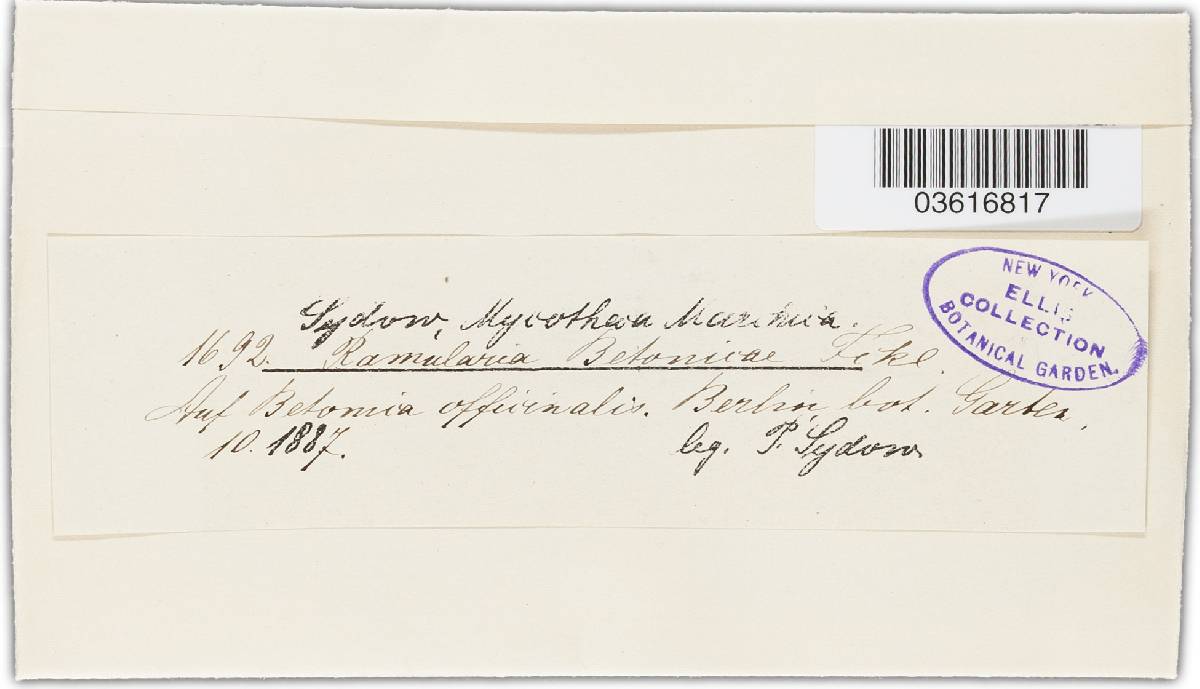 03616817
NEW YORK
ELLIS
COLLECTION
BOTANICAL GARDEN.
Sydow, Mycotheca Marchica.
1692. Ramularia Betonicae Fckl.
Auf Betonica officinalis. Berlin, bot. Garten,
10. 1887. leg. P. Sydow